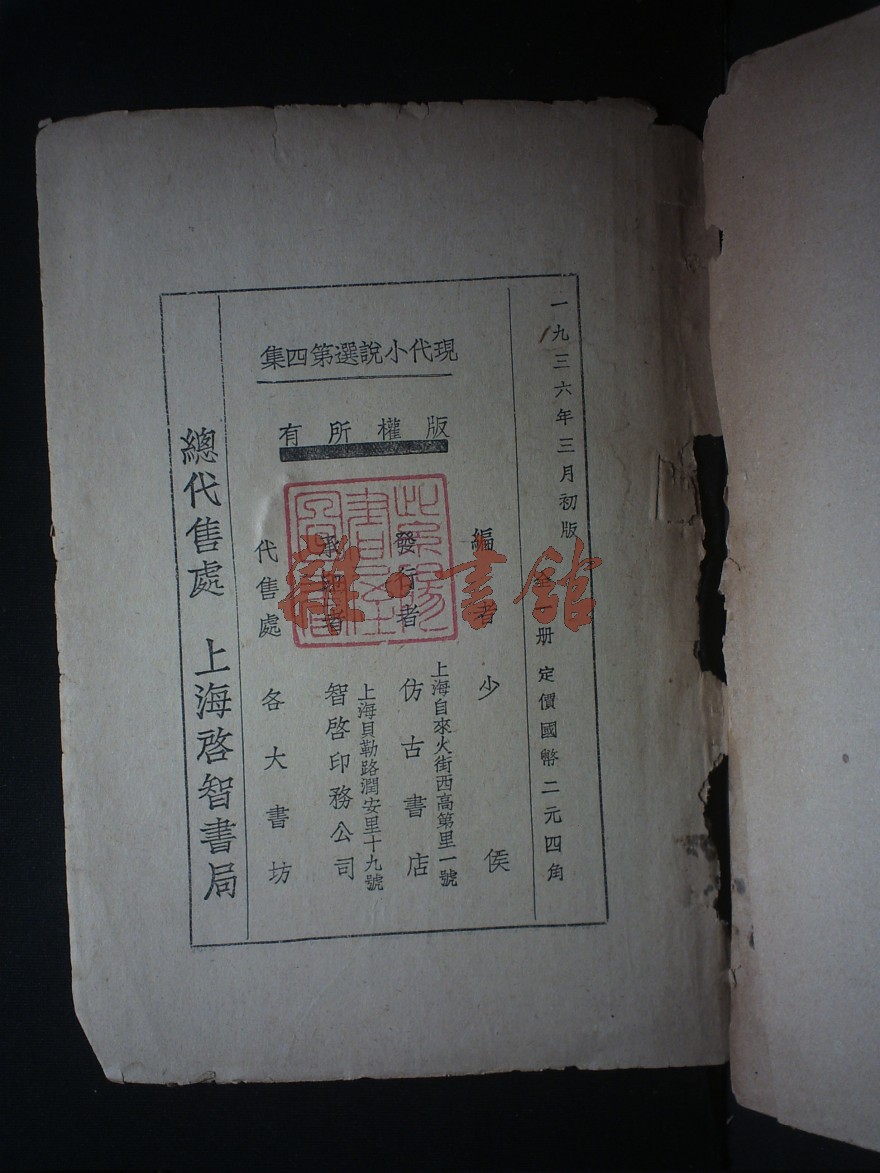 一九三六年三月初版 全一册 定價國幣二元四角
現代小說選第四集
版權所有
編者 少侯
發行者 上海自來火街西高第里一號
仿古書店
承印者 上海貝勒路潤安里十九號
智啓印務公司
代售處 各大書坊
總代售處 上海啓智書局
雜·書館